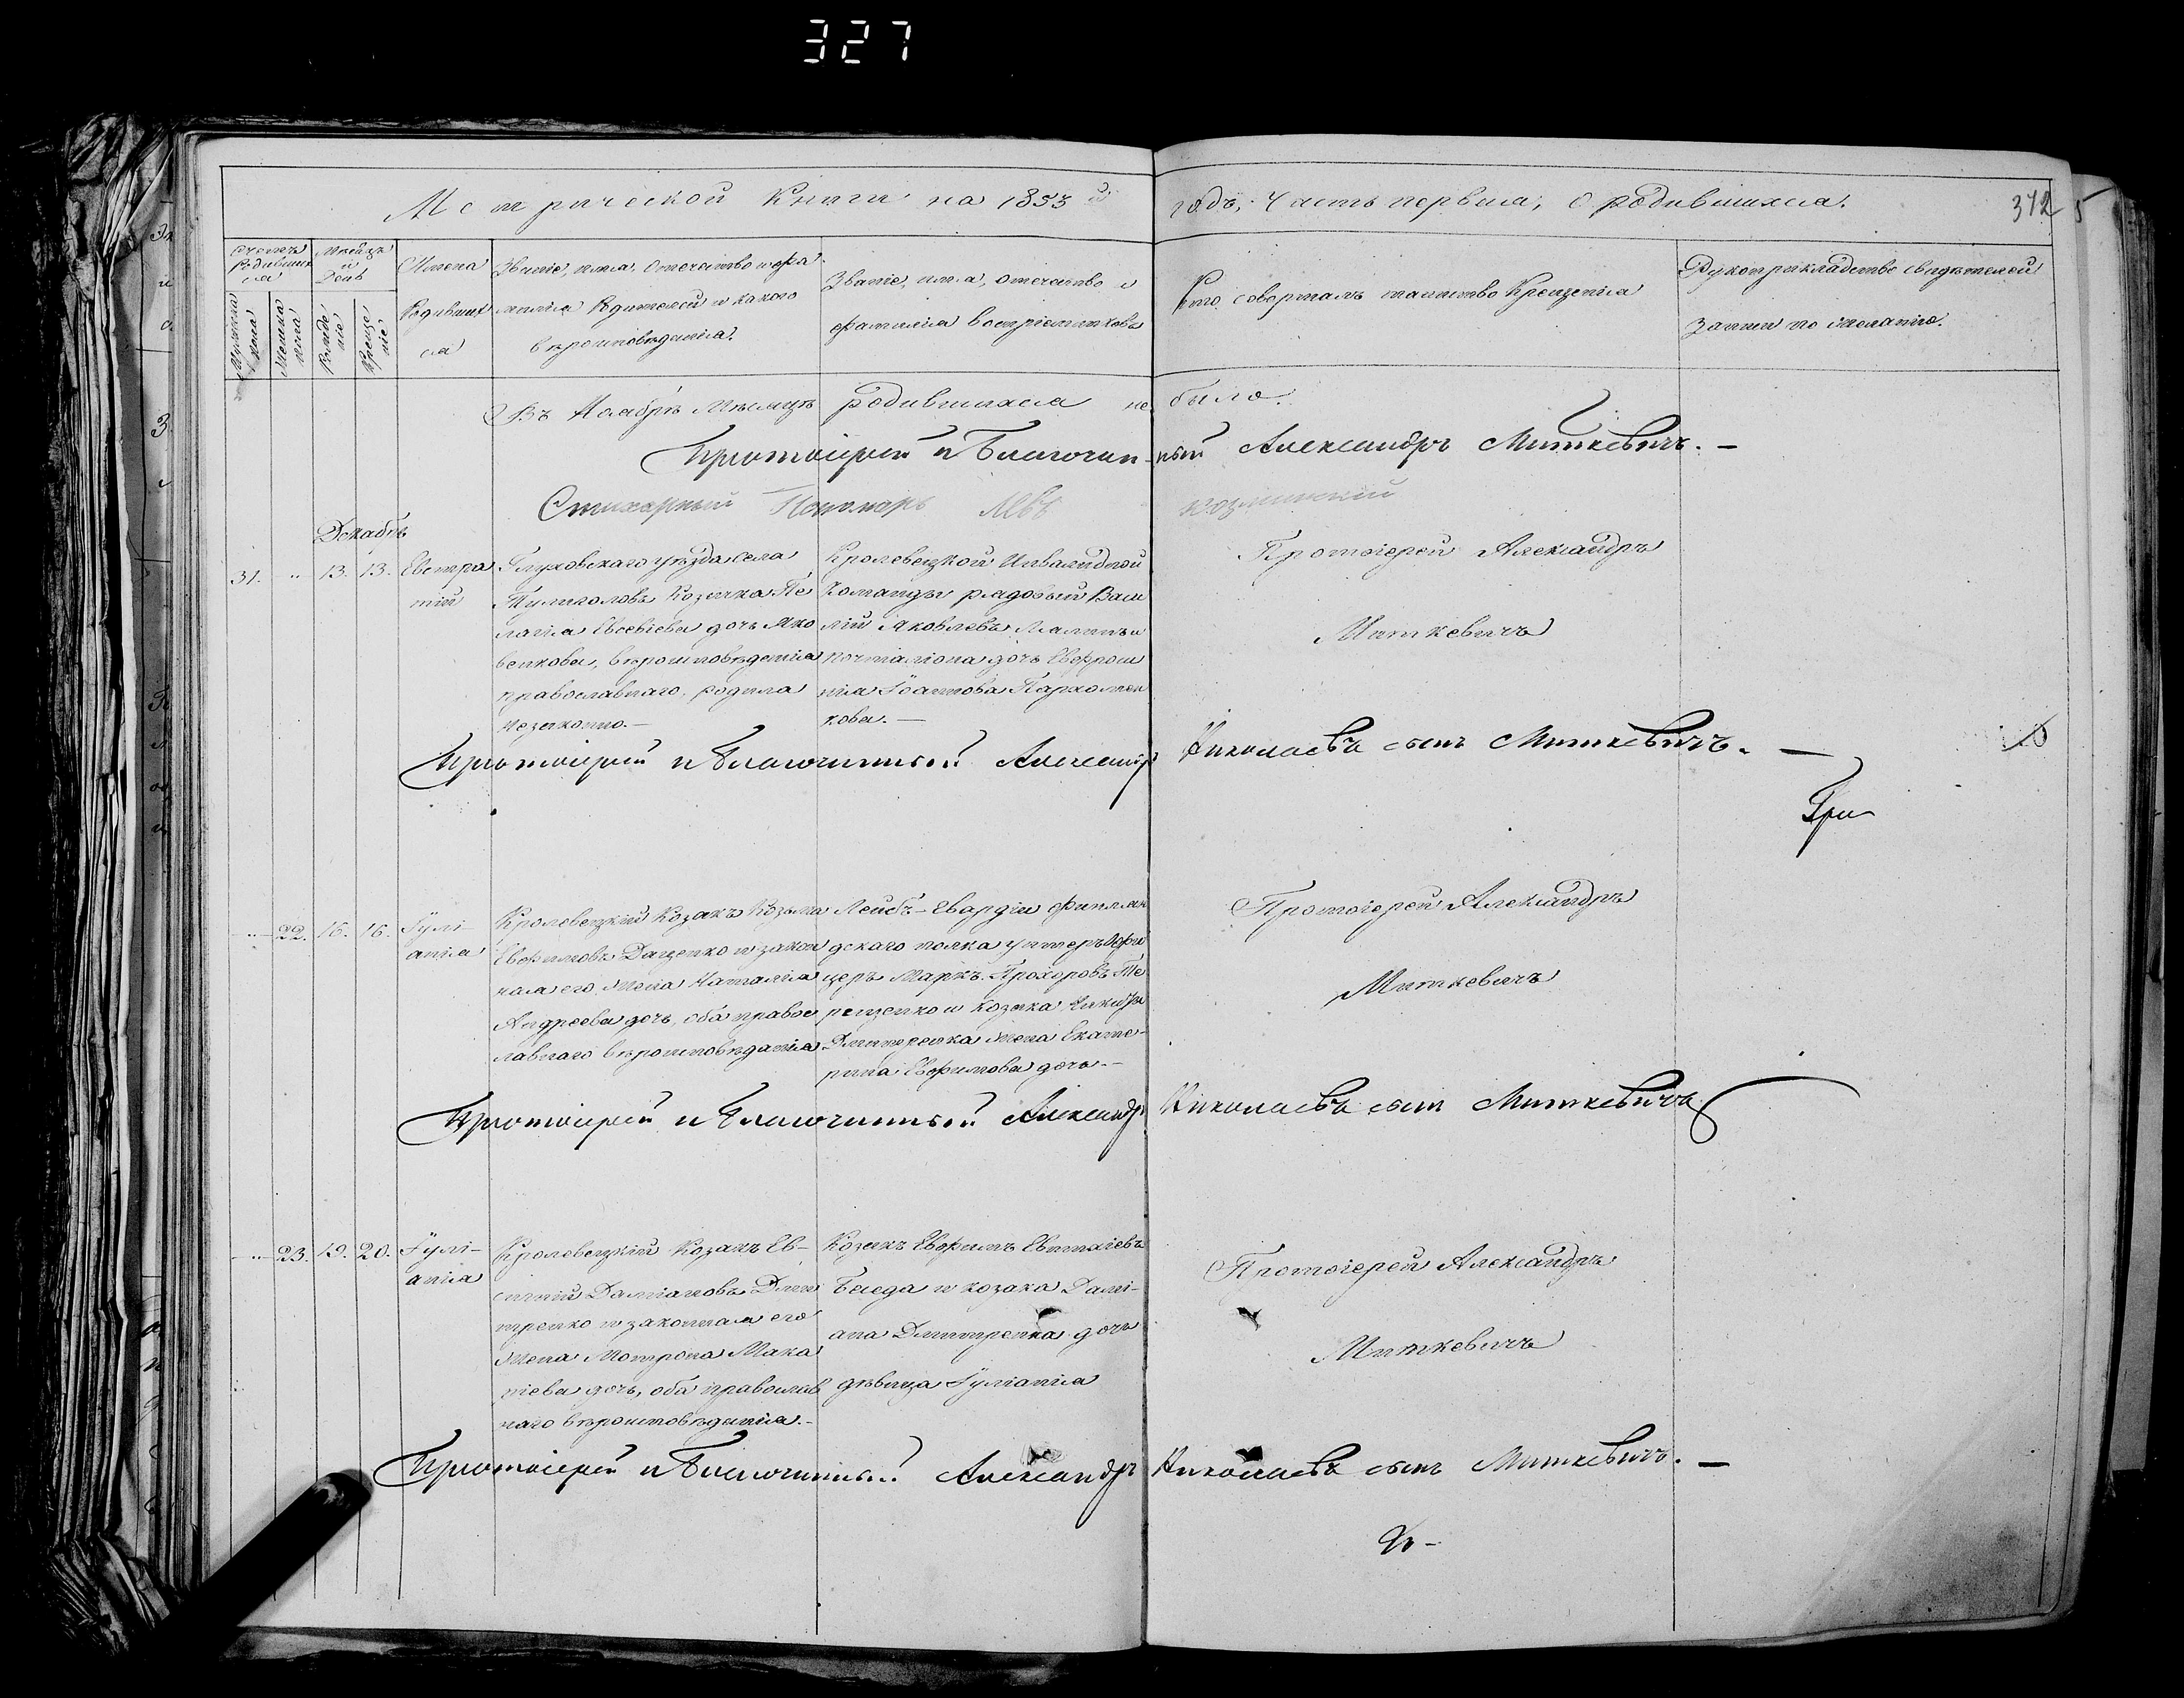 327
Метрической Книги на 1853 й годъ, Часть первая, о родившихся.
372
5
Счетъ родившихся
Мѣсяцъ и День
Имена родившихся
Званіе, имя, отечество и фамилія родителей и какого вѣроисповѣданія.
Званіе, имя, отечество и фамилія воспріемниковъ
Кто совершалъ таинство Крещенія
Рукоприкладство свидѣтелей записи по желанію.
Мужеска пола
Женска пола
Рожденіе
Крещеніе
Въ Ноябрѣ Мѣсяцѣ родившихся не было.
Протоіерей и Благочинный Александръ Миткевичъ. —
Стихарный Пономарь
Декабрь
31. " 13. 13. Евстратій
Глуховскаго уѣзда села
Тулиголовъ Козачка Пе
лагія Евсевіева дочь Яко
венкова, вѣроисповѣданія
православнаго, родила
незаконно. —
Кролевецкой Инвалидной
Команды рядовый Васи
лій Яковлевъ и
почталіона дочь Евфроси
нія Іоаннова Пархомен
кова. —
Протоіерей Александръ
Миткевичъ
Протоіерей и Благочинный Александръ Николаевъ сынъ Миткевичъ. —
Гри
" 22. 16. 16. Іулі-
анія
Кролевецкій Козакъ Козьма
Евфимовъ Даценко и закон
ная его жена Наталія
Андреева дочь, оба правос
лавнаго вѣроисповѣданія
Лейбъ-Гвардіи Финлян
дскаго полка унтеръ офи
церъ Маркъ Прохоровъ Те
рещенко и Козака
Дмитренка жена Екате-
рина Евфимова дочь. —
Протоіерей Александръ
Миткевичъ
Протоіерей и Благочинный Александръ Николаевъ сынъ Миткевичъ
" 23. 19. 20. Іулі-
анія
Кролевецкій Козакъ Ев-
Даміановъ Дми
тренко и законная его
жена Мотрона
дочь, оба православ
наго вѣроисповѣданія. —
Козакъ Евфимъ
Беседа и козака Дамі-
ана Дмитренка дочь
дѣвица Іуліанія
Протоіерей Александръ
Миткевичъ
Протоіерей и Благочинный Александръ Николаевъ сынъ Миткевичъ. —